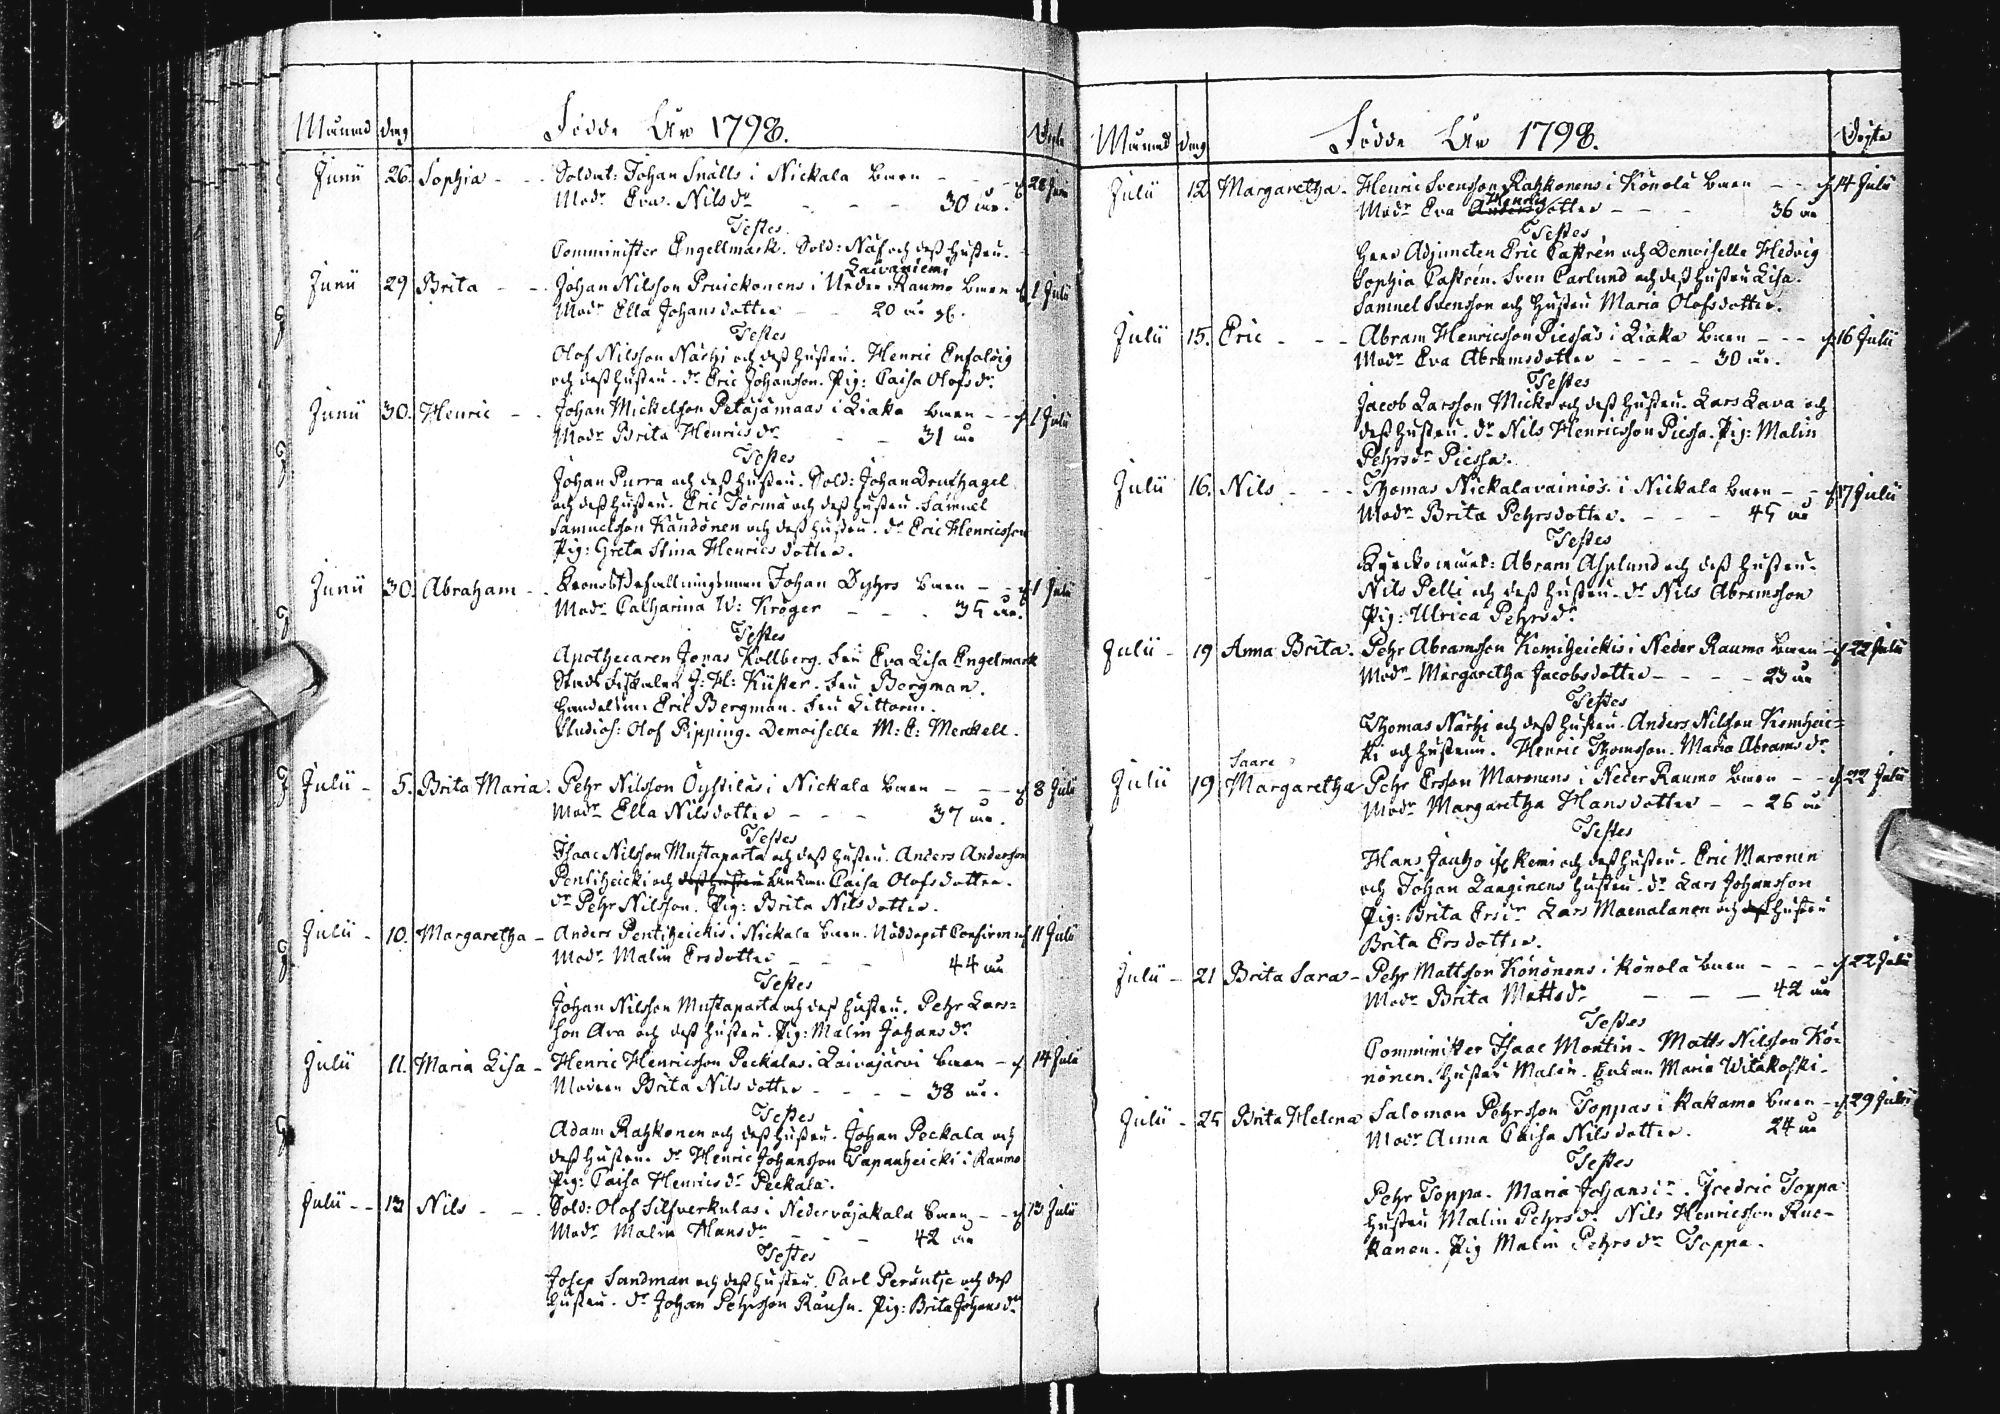 Månad dag Födde År 1798. Döpte
Junii 26. Sophia - - Soldat: Johan Snälls i Nickala barn - - - d 28 Juni
Modr Eva Nilsdr - - - 30 år.
Testes
Comminister Engellmark. Sold: Näf och dess hustru.
Laivaniemi
Junii 29 Brita - - Johan Nilsson Pruickonens i Neder Raumo barn d 1 Julii
Modr Ella Johansdotter - - 20 år
Testes
Olof Nilsson Närhi och dess hustru. Henric
och dess hustru. dr Eric Johansson. Pig: Caisa Olofsdr
Junii 30. Henric - - Johan Mickelsson Petäjämaas i Liaka barn - - d 1 Julii
Modr Brita Henricsdr - - 31 år
Testes
Johan Purra och dess hustru. Sold: Johan Drufhagel
och dess hustru. Eric Törmä och dess hustru. Samuel
Samuelsson Kandonen och dess hustru. dr Eric Henricsson
Pig: Greta Stina Henricsdotter.
Junii 30. Abraham - Johan Dyhrs barn - - d 1 Julii
Modr Catharina W: Kröger - - - 35 år.
Testes
Apothecaren Jonas Kollberg. Fru Eva Lisa Engelmark
Stadsfiskalen J: H: Küster. Fru Bergman.
Handelsm: Eric Bergman. Fru Littorin.
Studios: Olof Pipping. Demoiselle M: E: Merkell.
Julii - 5. Brita Maria. Pehr Nilsson Öystiläs i Nickala barn - - - d 8 Julii
Modr Ella Nilsdotter - - - 37 år.
Testes
Isaac Nilsson Mustaparta och dess hustru. Anders Andersson
Pentiheicki och dess hustru Caisa Olofsdotter.
dr Pehr Nilsson. Pig: Brita Nilsdotter.
Julii - 10. Margaretha - Anders Pentiheickis i Nickala barn. Nöddöpt Confirm: d 11 Julii
Modr Malin Ersdotter - - - 44 år
Testes
Johan Nilsson Mustaparta och dess hustru. Pehr Lars=
son Ara och dess hustru. Pig: Malin Johansdr
Julii 11. Maria Lisa - Henric Henricsson Peckalas i Laivajärvi barn - d 14 Julii
Modren Brita Nilsdotter - - - 38 år.
Testes
Adam Rahkonen och dess hustru. Johan Peckala och
dess hustru. dr Henric Johansson Tapanheicki i Raumo
Pig: Caisa Henricsdr Peckala.
Julii - - 13 Nils - - Sold: Olof Silfverkulas i Nedervojakala barn - - d 13 Julii
Modr Malin Hansdr - - - 42 år
Testes
Josep Sandman och dess hustru. Carl Peruntje och dess
hustru. dr Johan Pehrsson Rausu. Pig: Brita Johansdr
Månad dag Födde År 1798. Döpte
Julii 12 Margaretha. Henric Svensson Rahkonens i Könolä barn - - d 14 Julii
Henrics
Modr Eva Andersdotter - - - 36 år
Testes
Herr Adjuncten Eric Castrén och Demoiselle Hedvig
Sophia Castrén. Sven Carlund och dess hustru Lisa.
Samuel Svensson och hustru Maria Olofsdotter.
Julii 15. Eric - - - Abram Henricsson Piessäs i Liaka barn - - - d 16 Julii
Modr Eva Abramsdotter - - - - 30 år.
Testes
Jacob Larsson Micko och dess hustru. Lars Lava och
dess hustru. dr Nils Henricsson Piessa. Pig: Malin
Pehrsdr Piessa.
Julii 16. Nils - - - Thomas Nickalavainiös i Nickala barn - - d 17 Julii
Modr Brita Pehrsdotter. - - - 45 år
Testes
Abram Asplund och dess hustru.
Nils Pelli och dess hustru. dr Nils Abramsson
Pig: Ulrica Pehrsdr
Julii - 19 Anna Brita. Pehr Abramsson Kemiheickis i Neder Raumo barn - d 22 Julii
Modr Margaretha Jacobsdotter - - - - 23 år
Testes
Thomas Närhi och dess hustru. Anders Nilsson Kemiheic=
ki och hustru. Henric Thomsson. Maria Abramsdr
Saara
Julii 19 Margaretha Pehr Ersson Maronens i Neder Raumo barn - - d 22 Julii
Modr Margaretha Hansdotter - - 26 år
Testes
Hans Jautzo if Kemi och dess hustru. Eric Maronen
och Johan Laaginens hustru. dr Lars Johansson
Pig: Brita Ersdr Lars Maenalanen och dess hustru
Brita Ersdotter.
Julii - 21 Brita Sara - Pehr Mattsson Könönens i Könolä barn - - - d 22 Julii
Modr Brita Mattsdr - - - 42 år
Testes
Comminister Isaac Montin. Matts Nilsson Kö=
nönen. Hustru Malin. Enkan Maria Witakoski.
Julii - 25 Brita Helena Salomon Pehrsson Toppas i Kakamo barn - d 29 Julii
Modr Anna Caisa Nilsdotter. 24 år
Testes
Pehr Toppa. Maria Johansdr. Fredric Toppa
hustru Malin Pehrsdr Nils Henricsson Rue=
kanen. Pig Malin Pehrsdr Toppa.